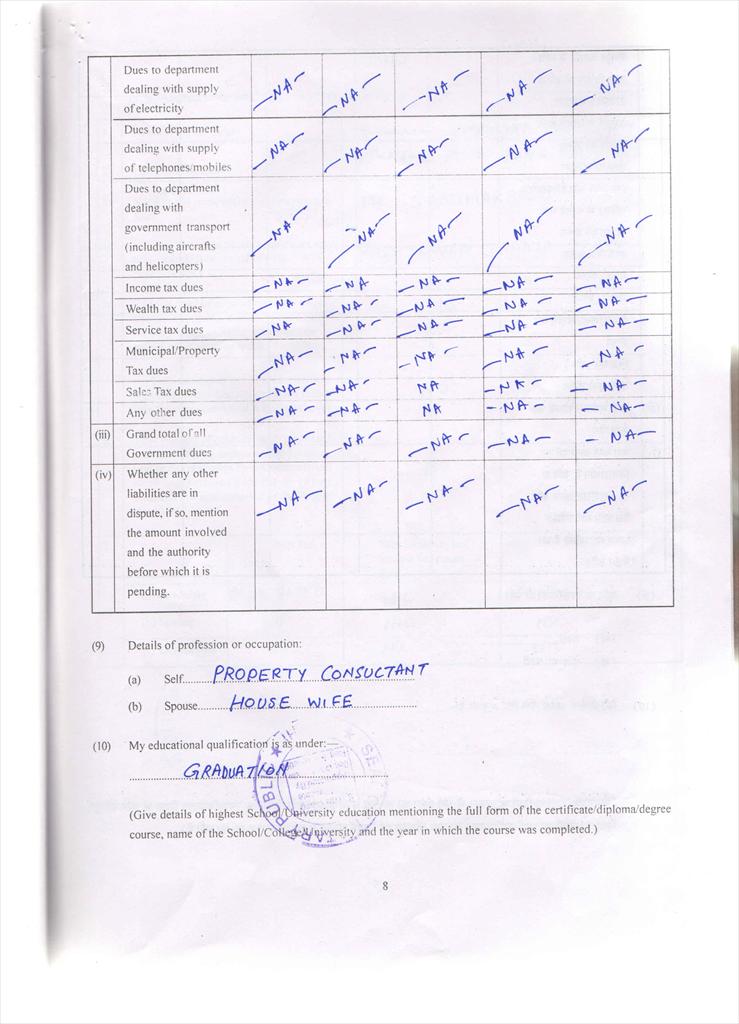 Dues to department
dealing with supply
of electricity
—NA— —NA— —NA— —NA— —NA—
Dues to department
dealing with supply
of telephones/mobiles
—NA— —NA— —NA— —NA— —NA—
Dues to department
dealing with
government transport
(including aircrafts
and helicopters)
—NA— —NA— —NA— —NA— —NA—
Income tax dues —NA— —NA —NA— —NA— —NA—
Wealth tax dues —NA— —NA— —NA— —NA— —NA—
Service tax dues —NA —NA— —NA— —NA— —NA—
Municipal/Property
Tax dues
—NA— —NA— —NA— —NA— —NA—
Sales Tax dues —NA— —NA— NA —NA— —NA—
Any other dues —NA— —NA— NA —NA— —NA—
(iii) Grand total of all
Government dues
—NA— —NA— —NA— —NA— —NA—
(iv) Whether any other
liabilities are in
dispute, if so, mention
the amount involved
and the authority
before which it is
pending.
—NA— —NA— —NA— —NA— —NA—
(9) Details of profession or occupation:
(a) Self PROPERTY CONSUCTANT
(b) Spouse HOUSE WIFE
(10) My educational qualification is as under:—
GRADUATION
(Give details of highest School/University education mentioning the full form of the certificate/diploma/degree
course, name of the School/College/University and the year in which the course was completed.)
8